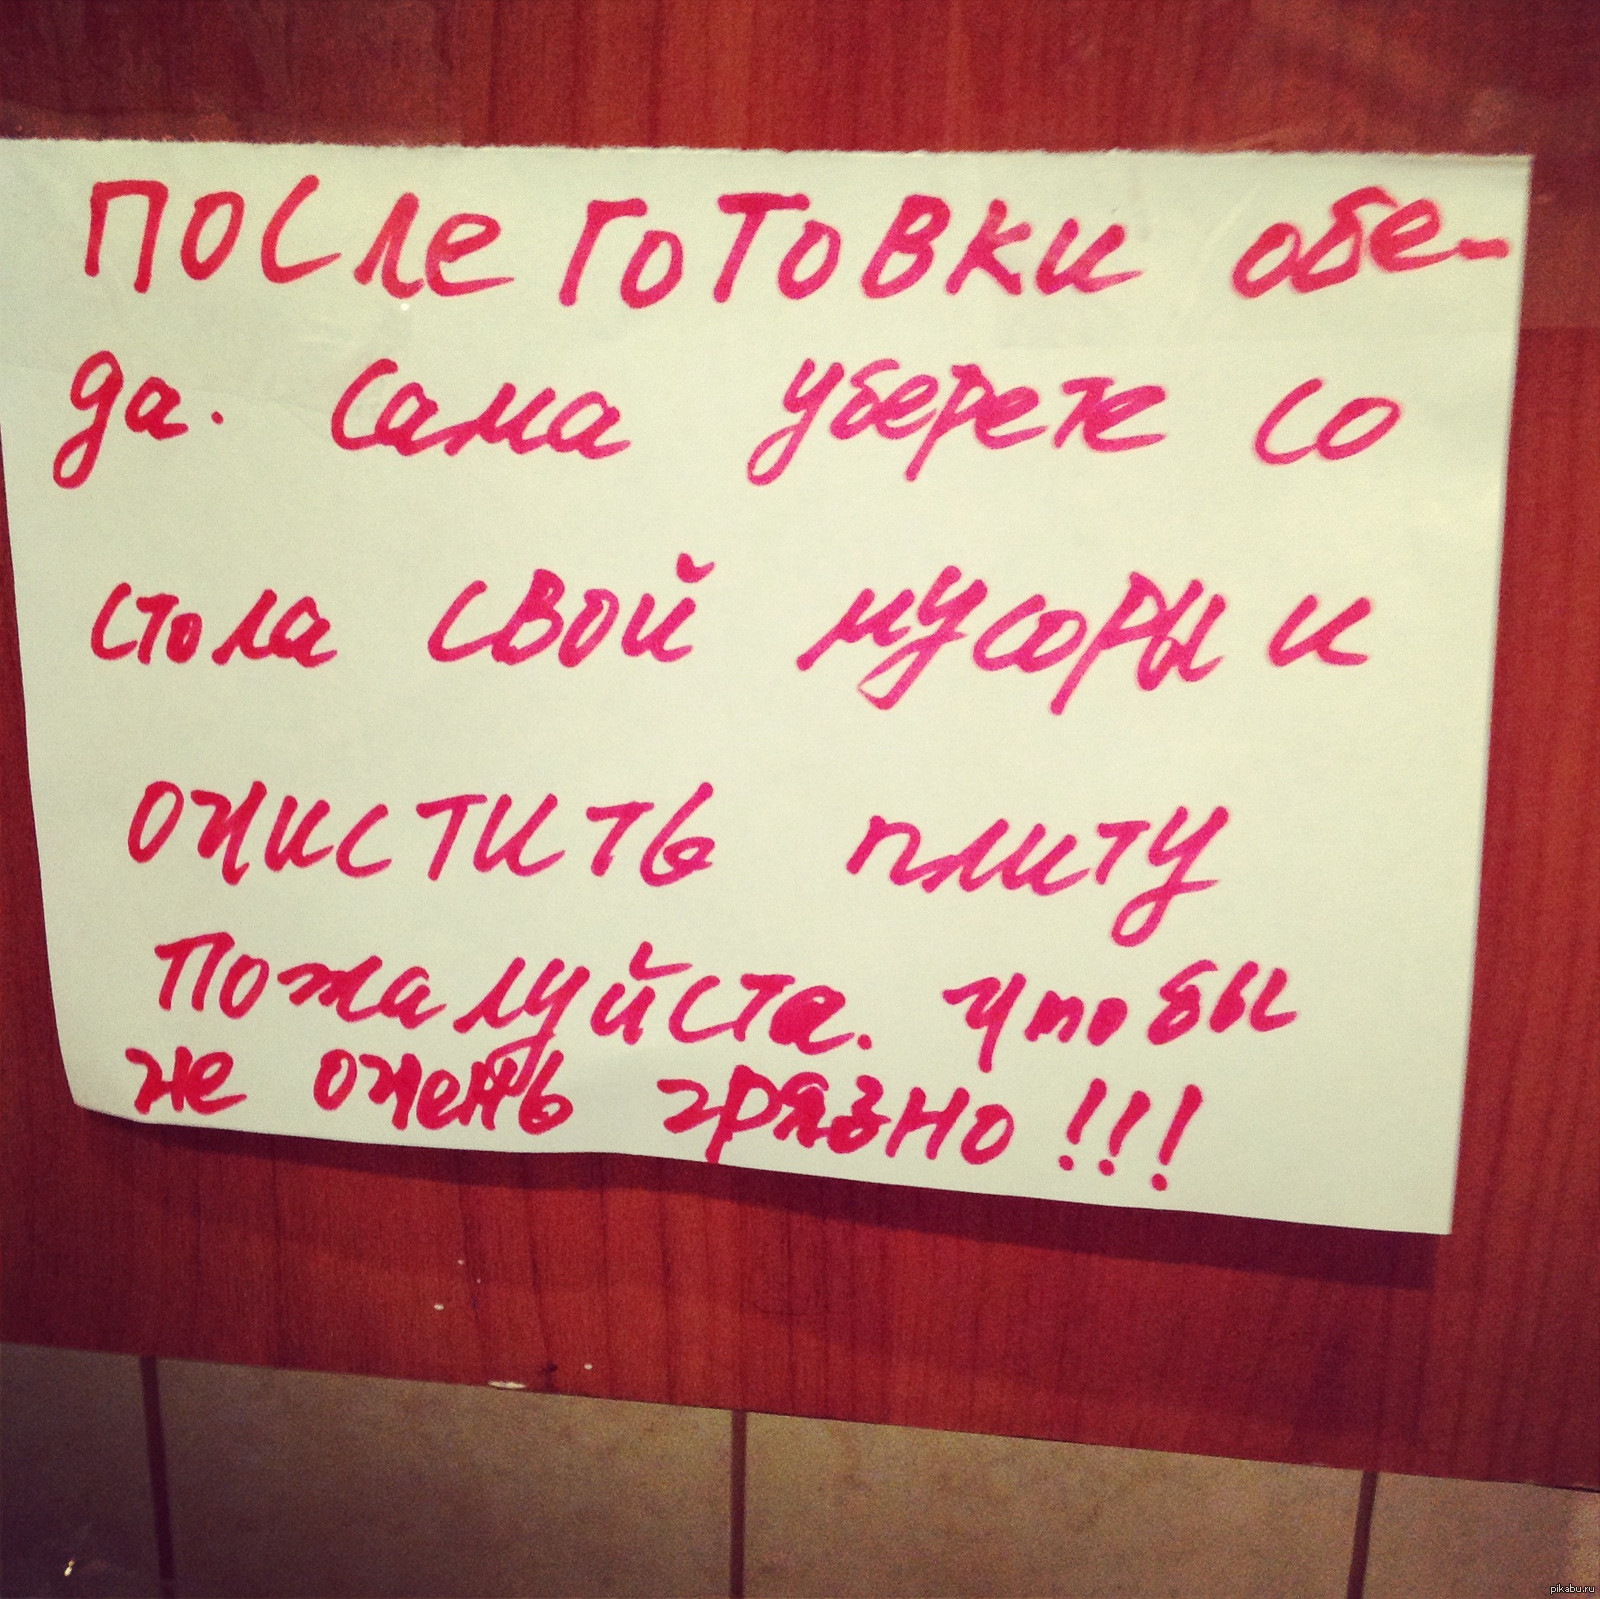 после готовки обе-
да. сама уберете со
стола свой мусоры и
очистить плиту
Пожалуйста. чтобы
не очень грязно!!!
pikabu.ru